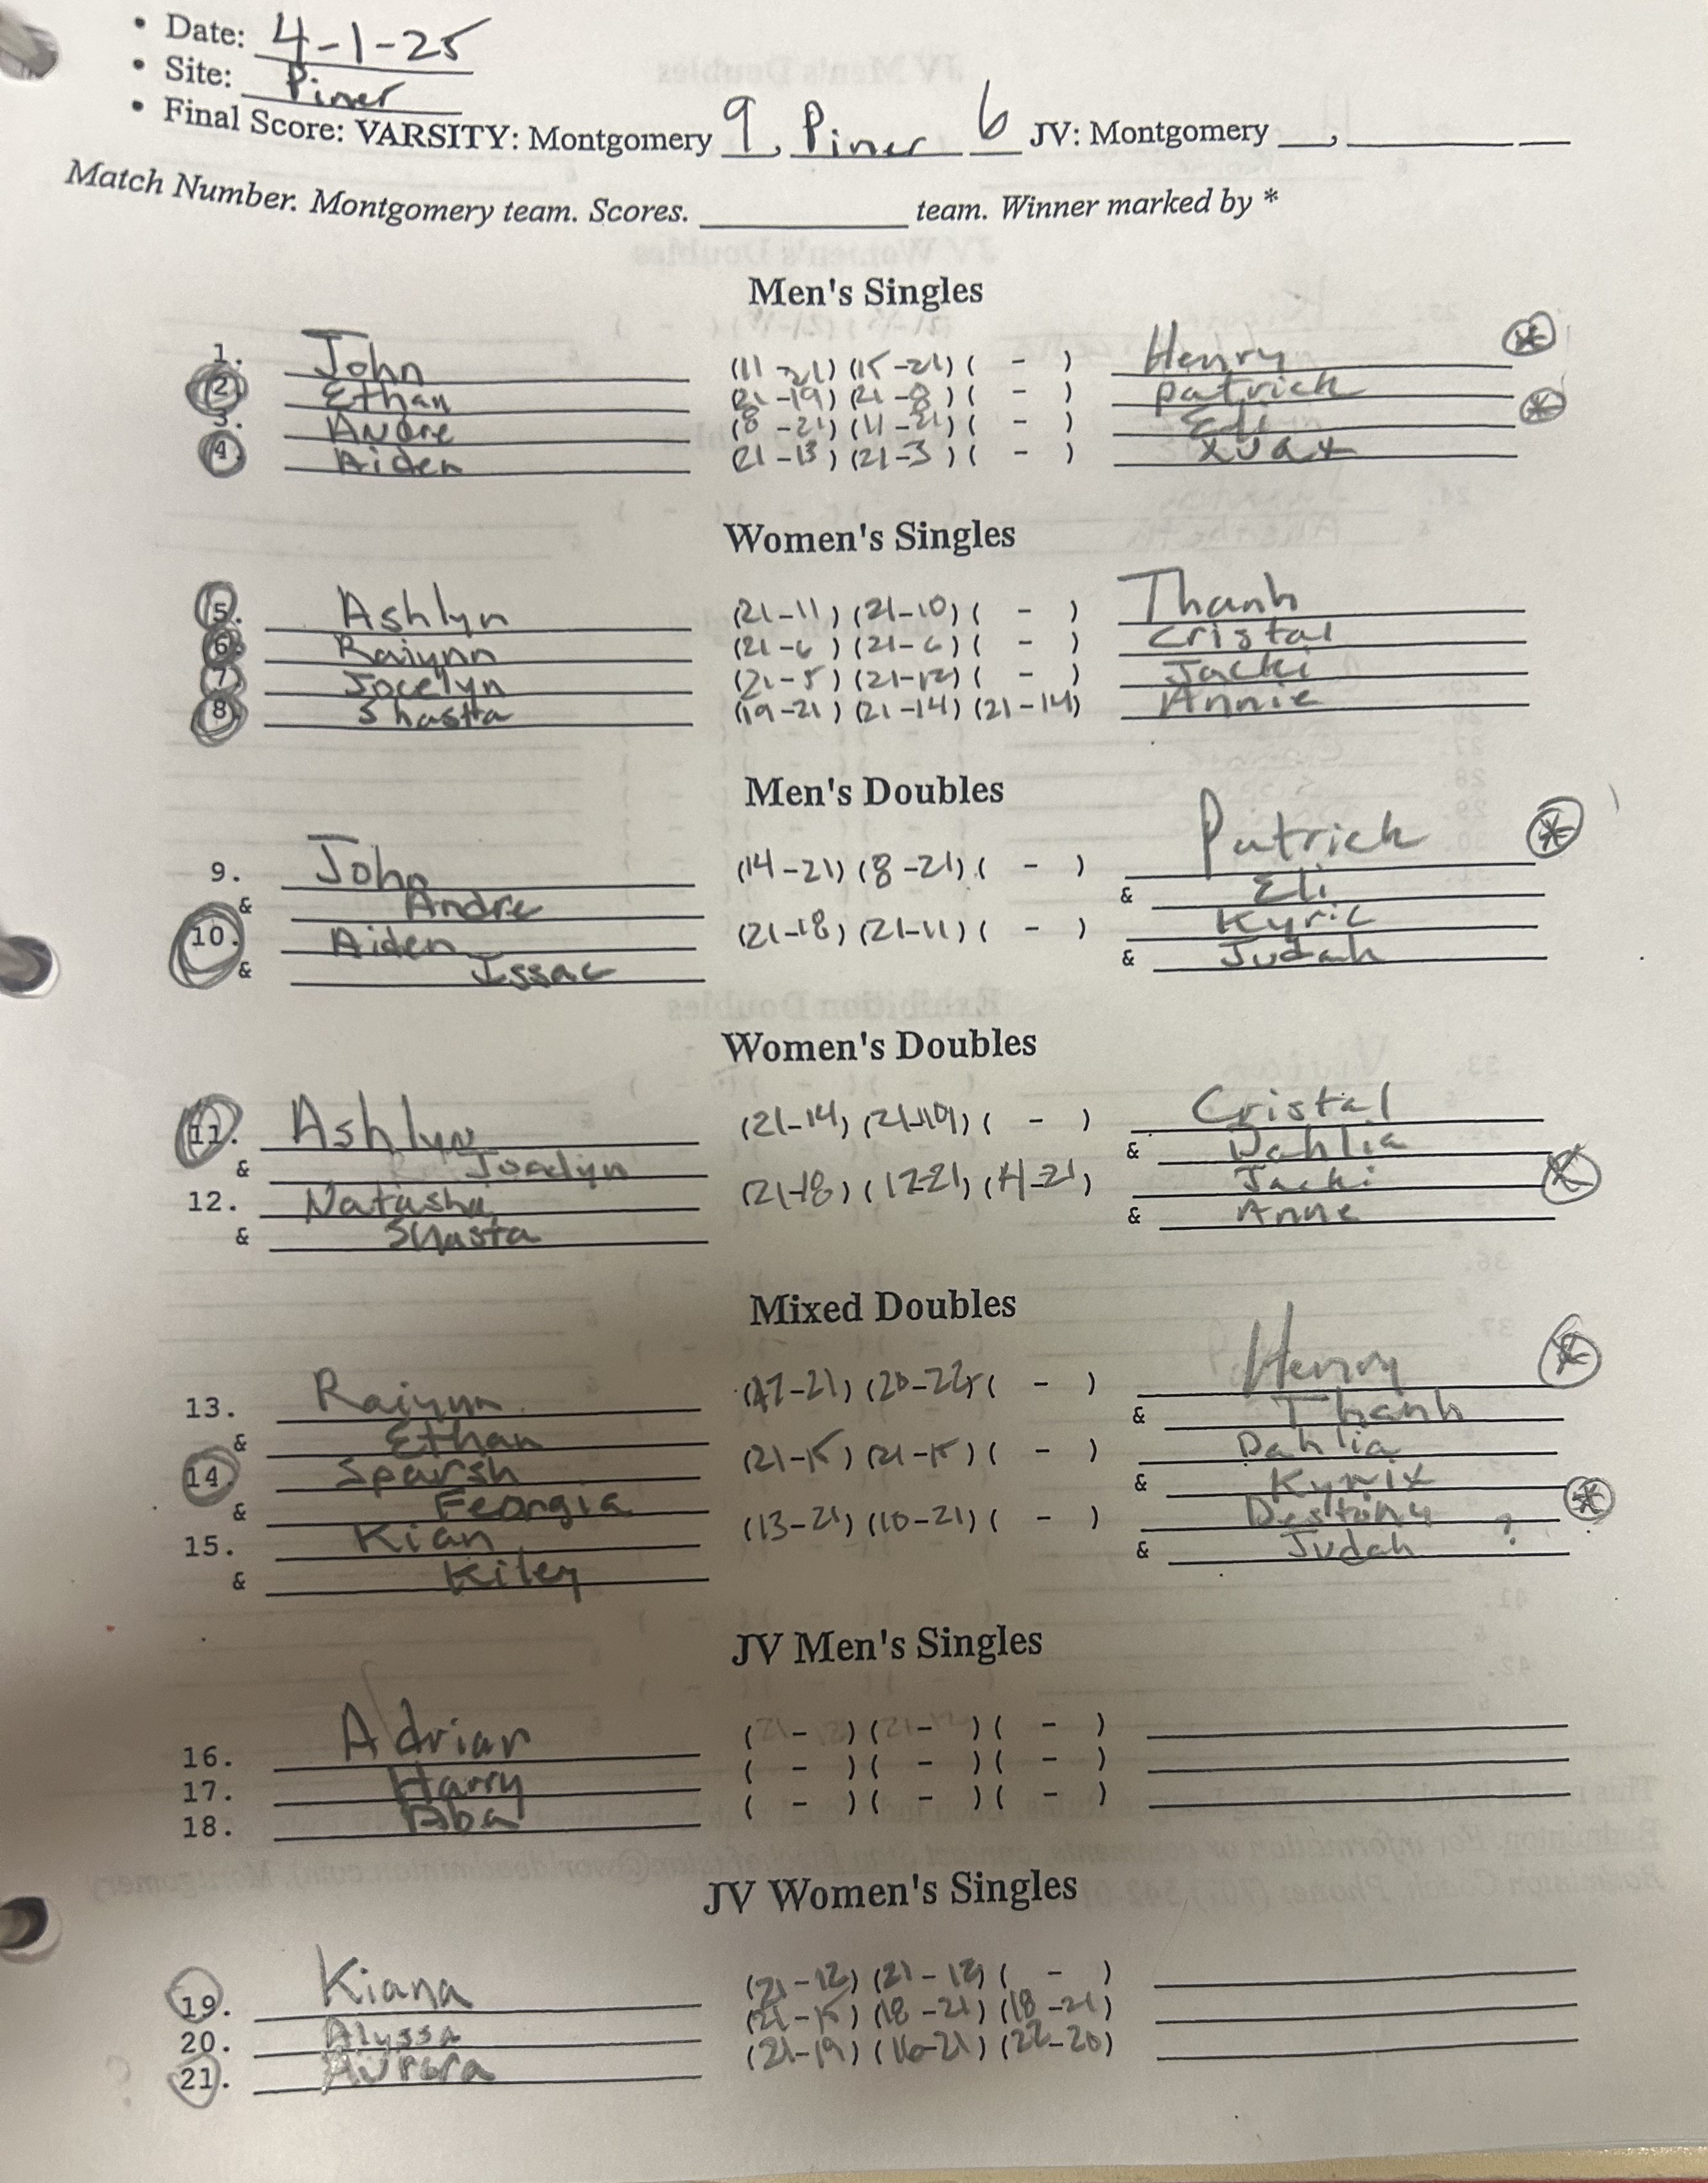 • Date: 4-1-25
• Site: Piner
• Final Score: VARSITY: Montgomery 9, Piner 6 JV: Montgomery ___, ___ ___
Match Number. Montgomery team. Scores. ___ team. Winner marked by *
Men's Singles
1. John (11-21) (15-21) ( - ) Henry *
2. Ethan (21-19) (21-8) ( - ) Patrick
3. Andre (8-21) (11-21) ( - ) *
4. Aiden (21-13) (21-3) ( - )
Women's Singles
5. Ashlyn (21-11) (21-10) ( - ) Thanh
6. Raiynn (21-6) (21-6) ( - ) Cristal
7. Jocelyn (21-5) (21-12) ( - ) Jacki
8. Shasta (19-21) (21-14) (21-14) Annie
Men's Doubles
9. John (14-21) (8-21) ( - ) Patrick *
& Andre & Eli
10. Aiden (21-18) (21-11) ( - ) Kyric
& Issac & Judah
Women's Doubles
11. Ashlyn (21-14) ( - ) Cristal
& & Dahlia
12. Natasha (21-18) (12-21) Jacki *
& Shasta & Anne
Mixed Doubles
13. Raiynn (17-21) (20-22) ( - ) Henry *
& Ethan & Thanh
14. Sparsh (21-15) (21-15) ( - ) Dahlia
& Feorgia & Kyrix
15. Kian (13-21) (10-21) ( - ) Destony *
& Kiley & Judah ?
JV Men's Singles
16. Adrian ( - ) ( - ) ( - )
17. Harry ( - ) ( - ) ( - )
18. Aba ( - ) ( - ) ( - )
JV Women's Singles
19. Kiana (21-12) (21-12) ( - )
20. Alyssa (21-15) (18-21) (18-21)
? 21. Aurora (21-19) (16-21) (22-20)